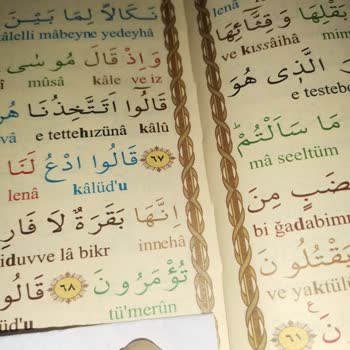 lenâ
بَقْلِهَا وَ قِثَّٓائِهَا
ve kıssâihâ
الَّذٖى هُوَ
e testebd
مَا سَاَلْتُمْ
mâ seeltüm
ضَبٍ مِنَ
bi ğadabimm
يَقْتُلُونَ
ve yaktül
٦١
نَكَالًا لِمَا بَيْنَ
kâlelli mâbeyne yedeyhâ
وَاِذْ قَالَ مُوسٰى
mûsâ kâle ve iz
قَالُٓوا اَتَتَّخِذُنَا هُ
vâ e tettehızünâ kâlû
٦٧ قَالُوا ادْعُ لَنَا
lenâ kâlüd'u
اِنَّهَا بَقَرَةٌ لَا فَارِ
iduvve lâ bikr innehâ
تُؤْمَرُونَ ٦٨ قَالُو
üd'u tü'merûn